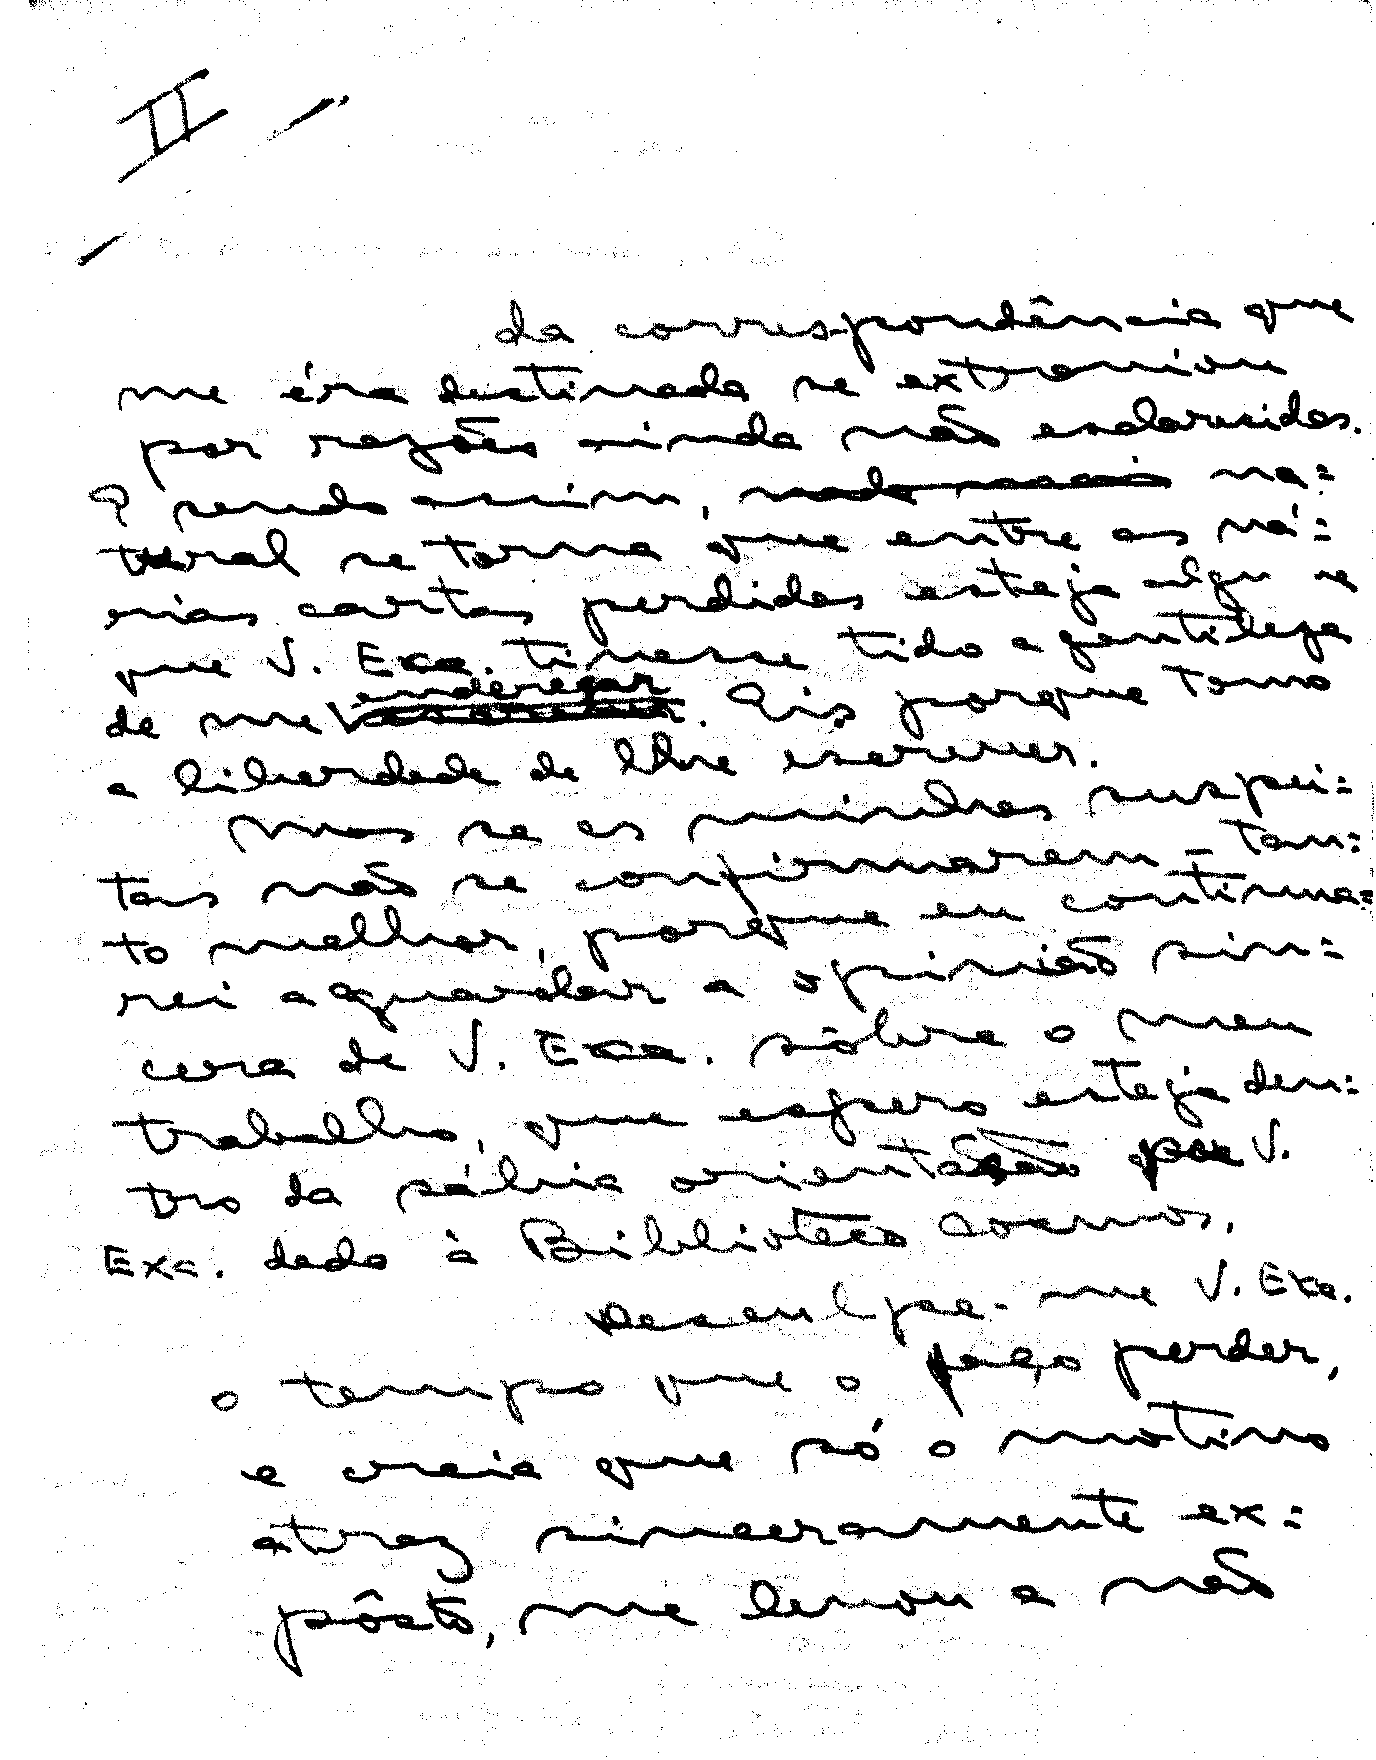 II
da correspondência que
me éra destinada se extraviou
por razões ainda não esclarecidas.
E sendo assim, nada mais na=
tural se torna que entre as vá=
rias cartas perdidas esteja algu re
que V. Exa. tivesse tido a gentileza
de me endereçar. Eis porque tomo
a liberdade de lhe escrever.
Mas se as minhas suspei=
tas não se confirmarem - tan=
to melhor, porque eu continua=
rei a aguardar a opinião sin=
cera de V. Exa. sôbre o meu
trabalho, que espero esteja den=
tro da sábia orientação por V.
Exa. dada à Biblioteca Cosmos.
Desculpe-me V. Exa.
o tempo que o faço perder,
e creia que só o motivo
atraz sinceramente ex=
pôsto, me levou a não